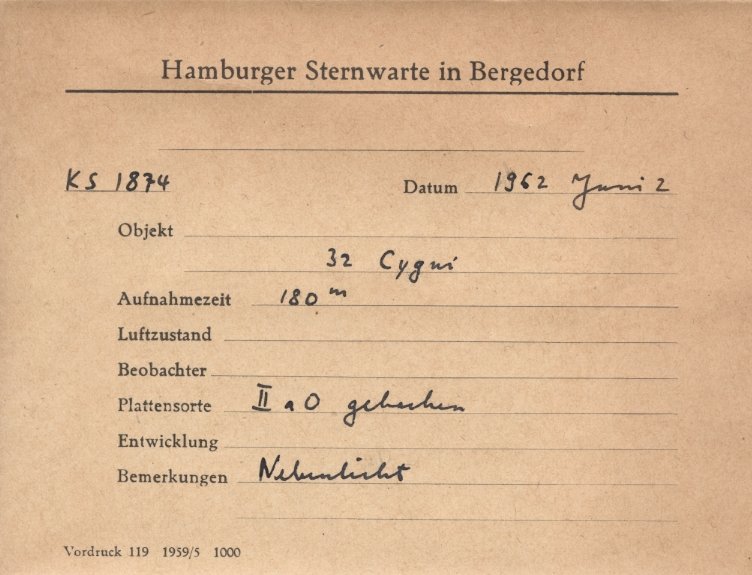 Hamburger Sternwarte in Bergedorf
KS 1874 Datum 1962 Juni 2
Objekt
32 Cygni
Aufnahmezeit 180 m
Luftzustand
Beobachter
Plattensorte II a O gebacken
Entwicklung
Bemerkungen Nebenlicht
Vordruck 119 1959/5 1000